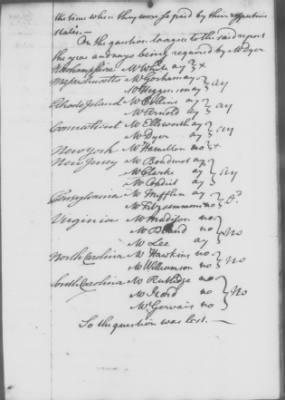 the time when they were so paid by their respective
States. —
On the question to agree to the said report
the yeas and nays being required by Mr Dyer
N Hampshire Mr White ay } +
Massachusetts Mr Gorham ay } ay
Mr Higginson ay
Rhode Island Mr Collins ay } ay
Mr Arnold ay
Connecticut Mr Ellsworth ay } ay
Mr Dyer ay
New York Mr Hamilton no } +
New Jersey Mr Boudinot ay
Mr Clarke ay } ay
Mr Condict ay
Pensylvania Mr Mifflin ay } d
Mr Fitzsimmons no
Virginia Mr Maddison no
Mr Bland no } No
Mr Lee ay
North Carolina Mr Hawkins no } No
Mr Williamson no
South Carolina Mr Rutlidge no
Mr Izard no } No
Mr Gervais no
So the question was lost. —